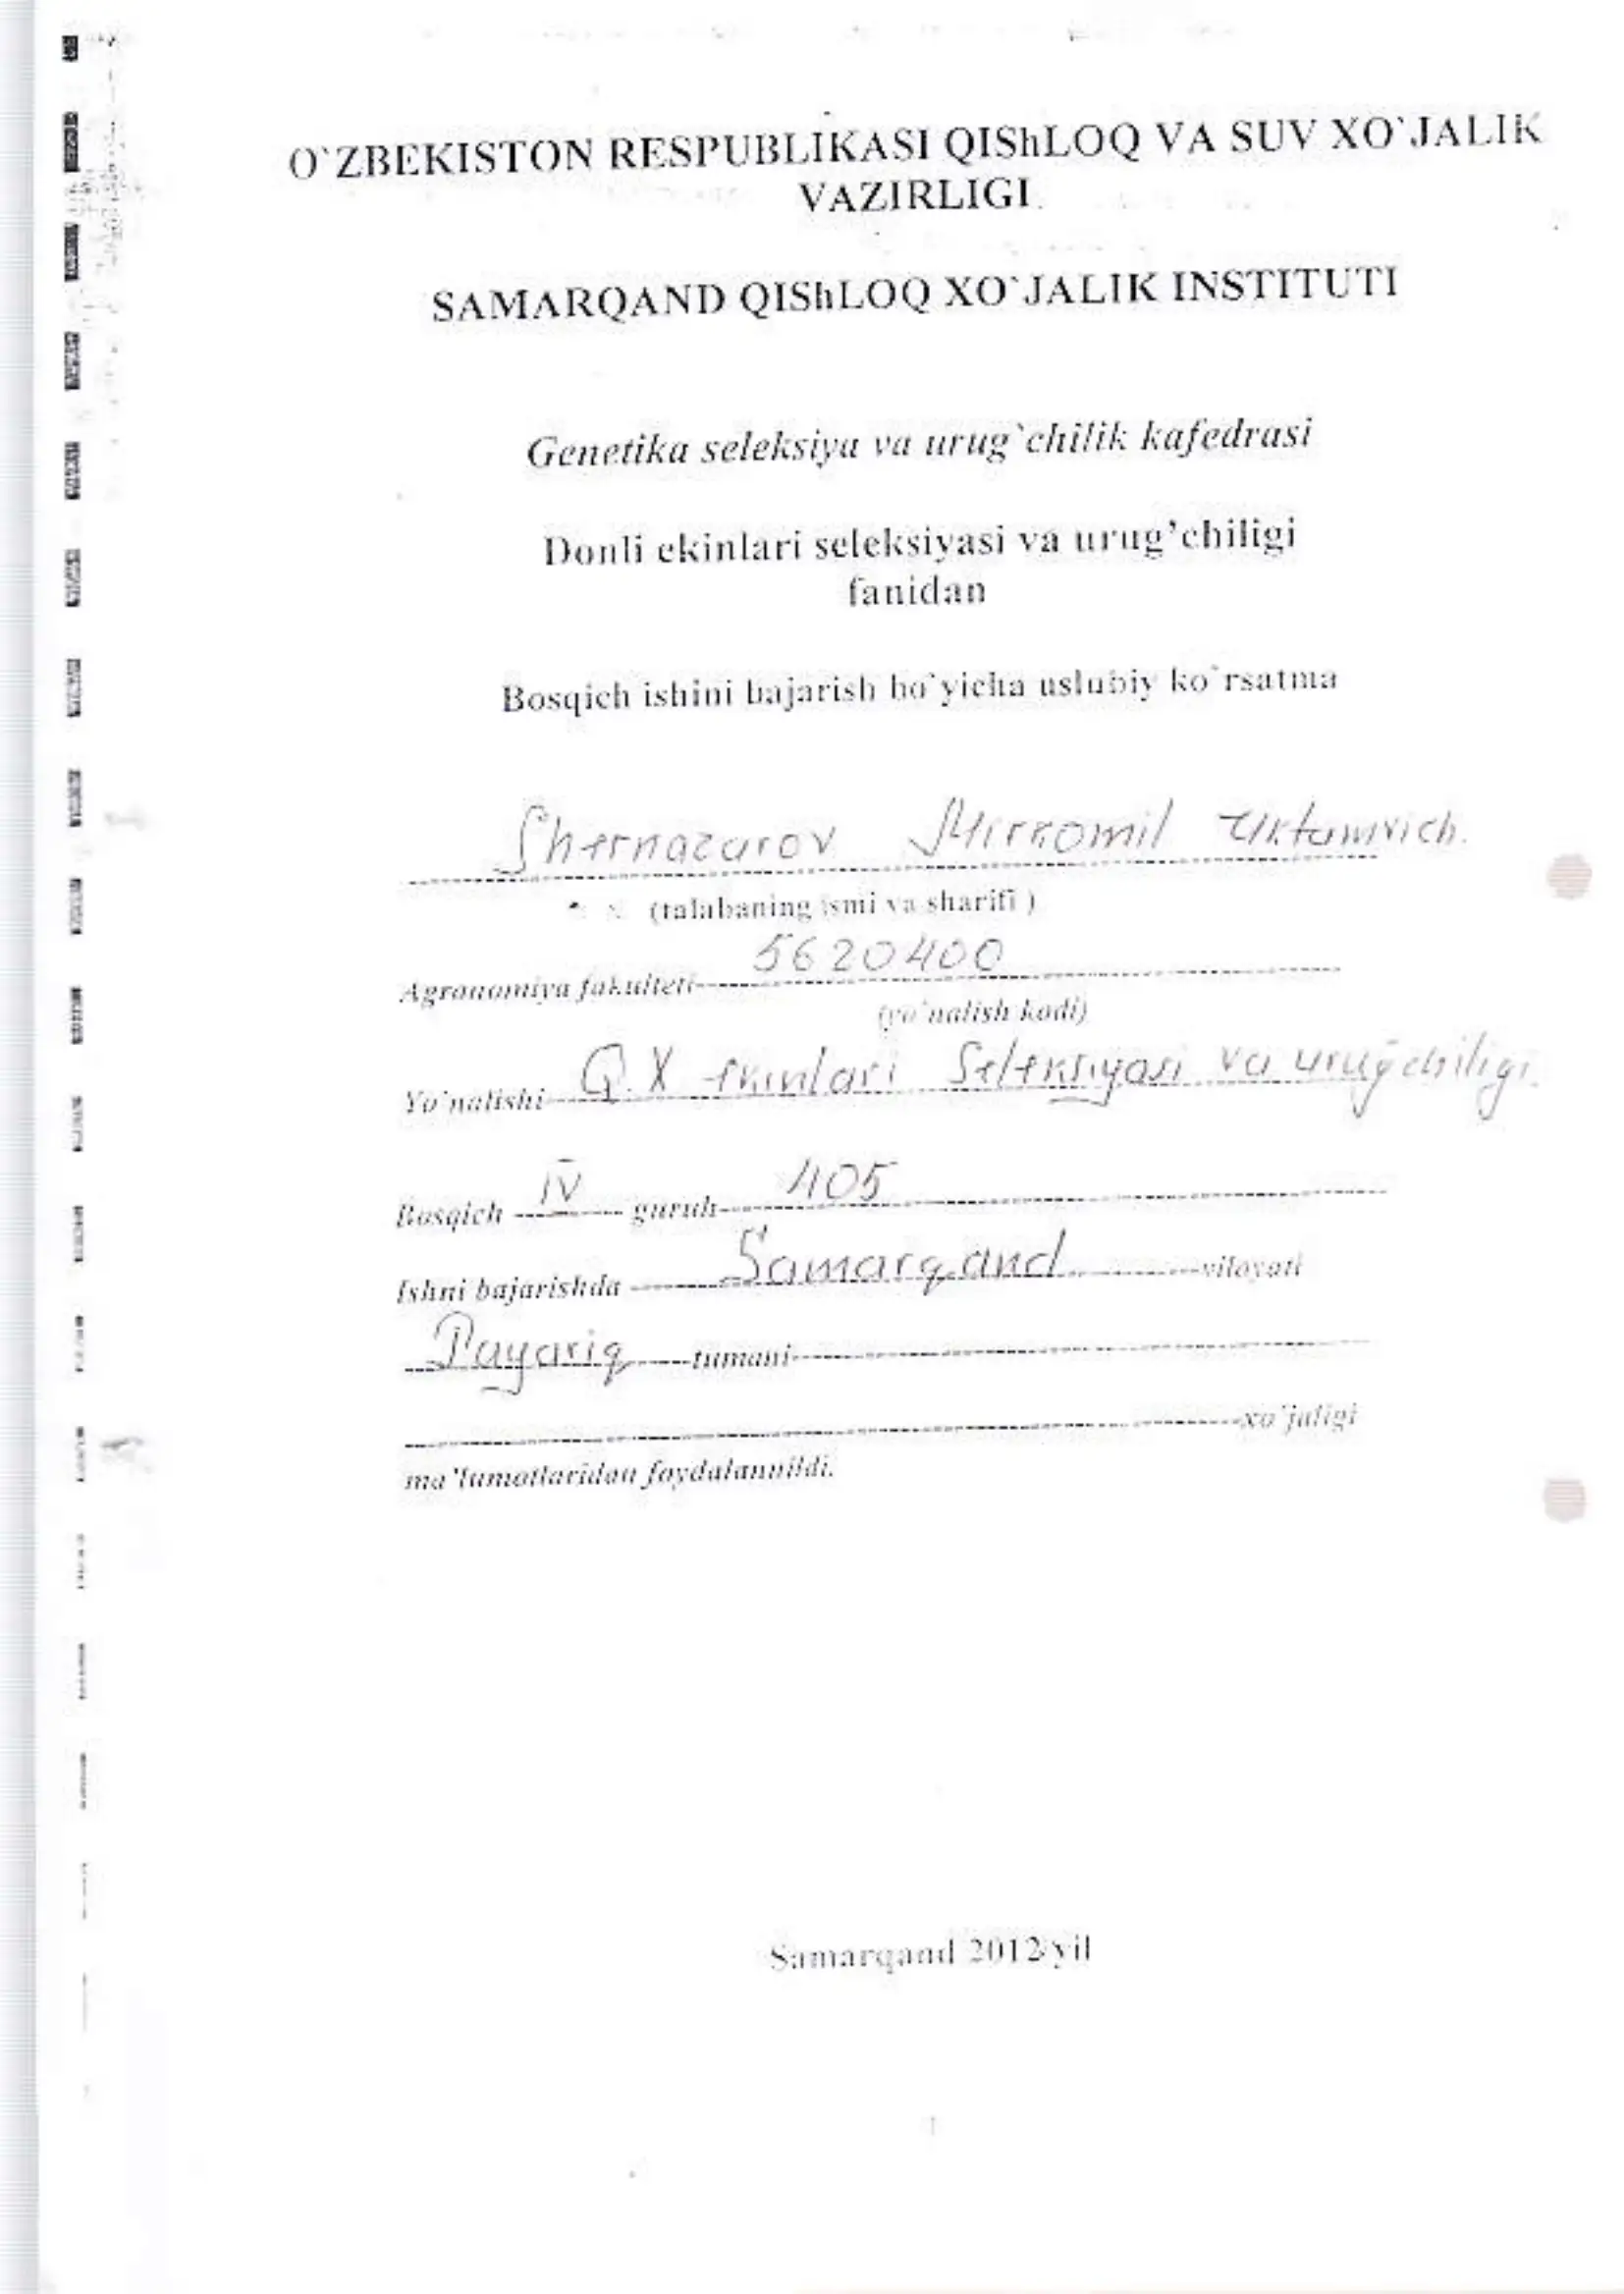 O`ZBEKISTON RESPUBLIKASI QIShLOQ VA SUV XO`JALIK
VAZIRLIGI
SAMARQAND QIShLOQ XO`JALIK INSTITUTI
Genetika seleksiya va urug`chilik kafedrasi
Donli ekinlari seleksiyasi va urug’chiligi
fanidan
Bosqich ishini bajarish bo`yicha uslubiy ko`rsatma
Shernazarov Mirkomil Uktamvich.
(talabaning ismi va sharifi )
Agranomiya fakulteti 5620400
(yo`nalish kodi)
Yo`nalishi Q.X ekinlari Seleksiyasi va urug̃chiligi.
Bosqich IV guruh 405
Ishni bajarishda Samarqand viloyati
Payariq tumani
xo`jaligi
ma’lumotlaridan foydalannildi.
Samarqand 2012 yil
1